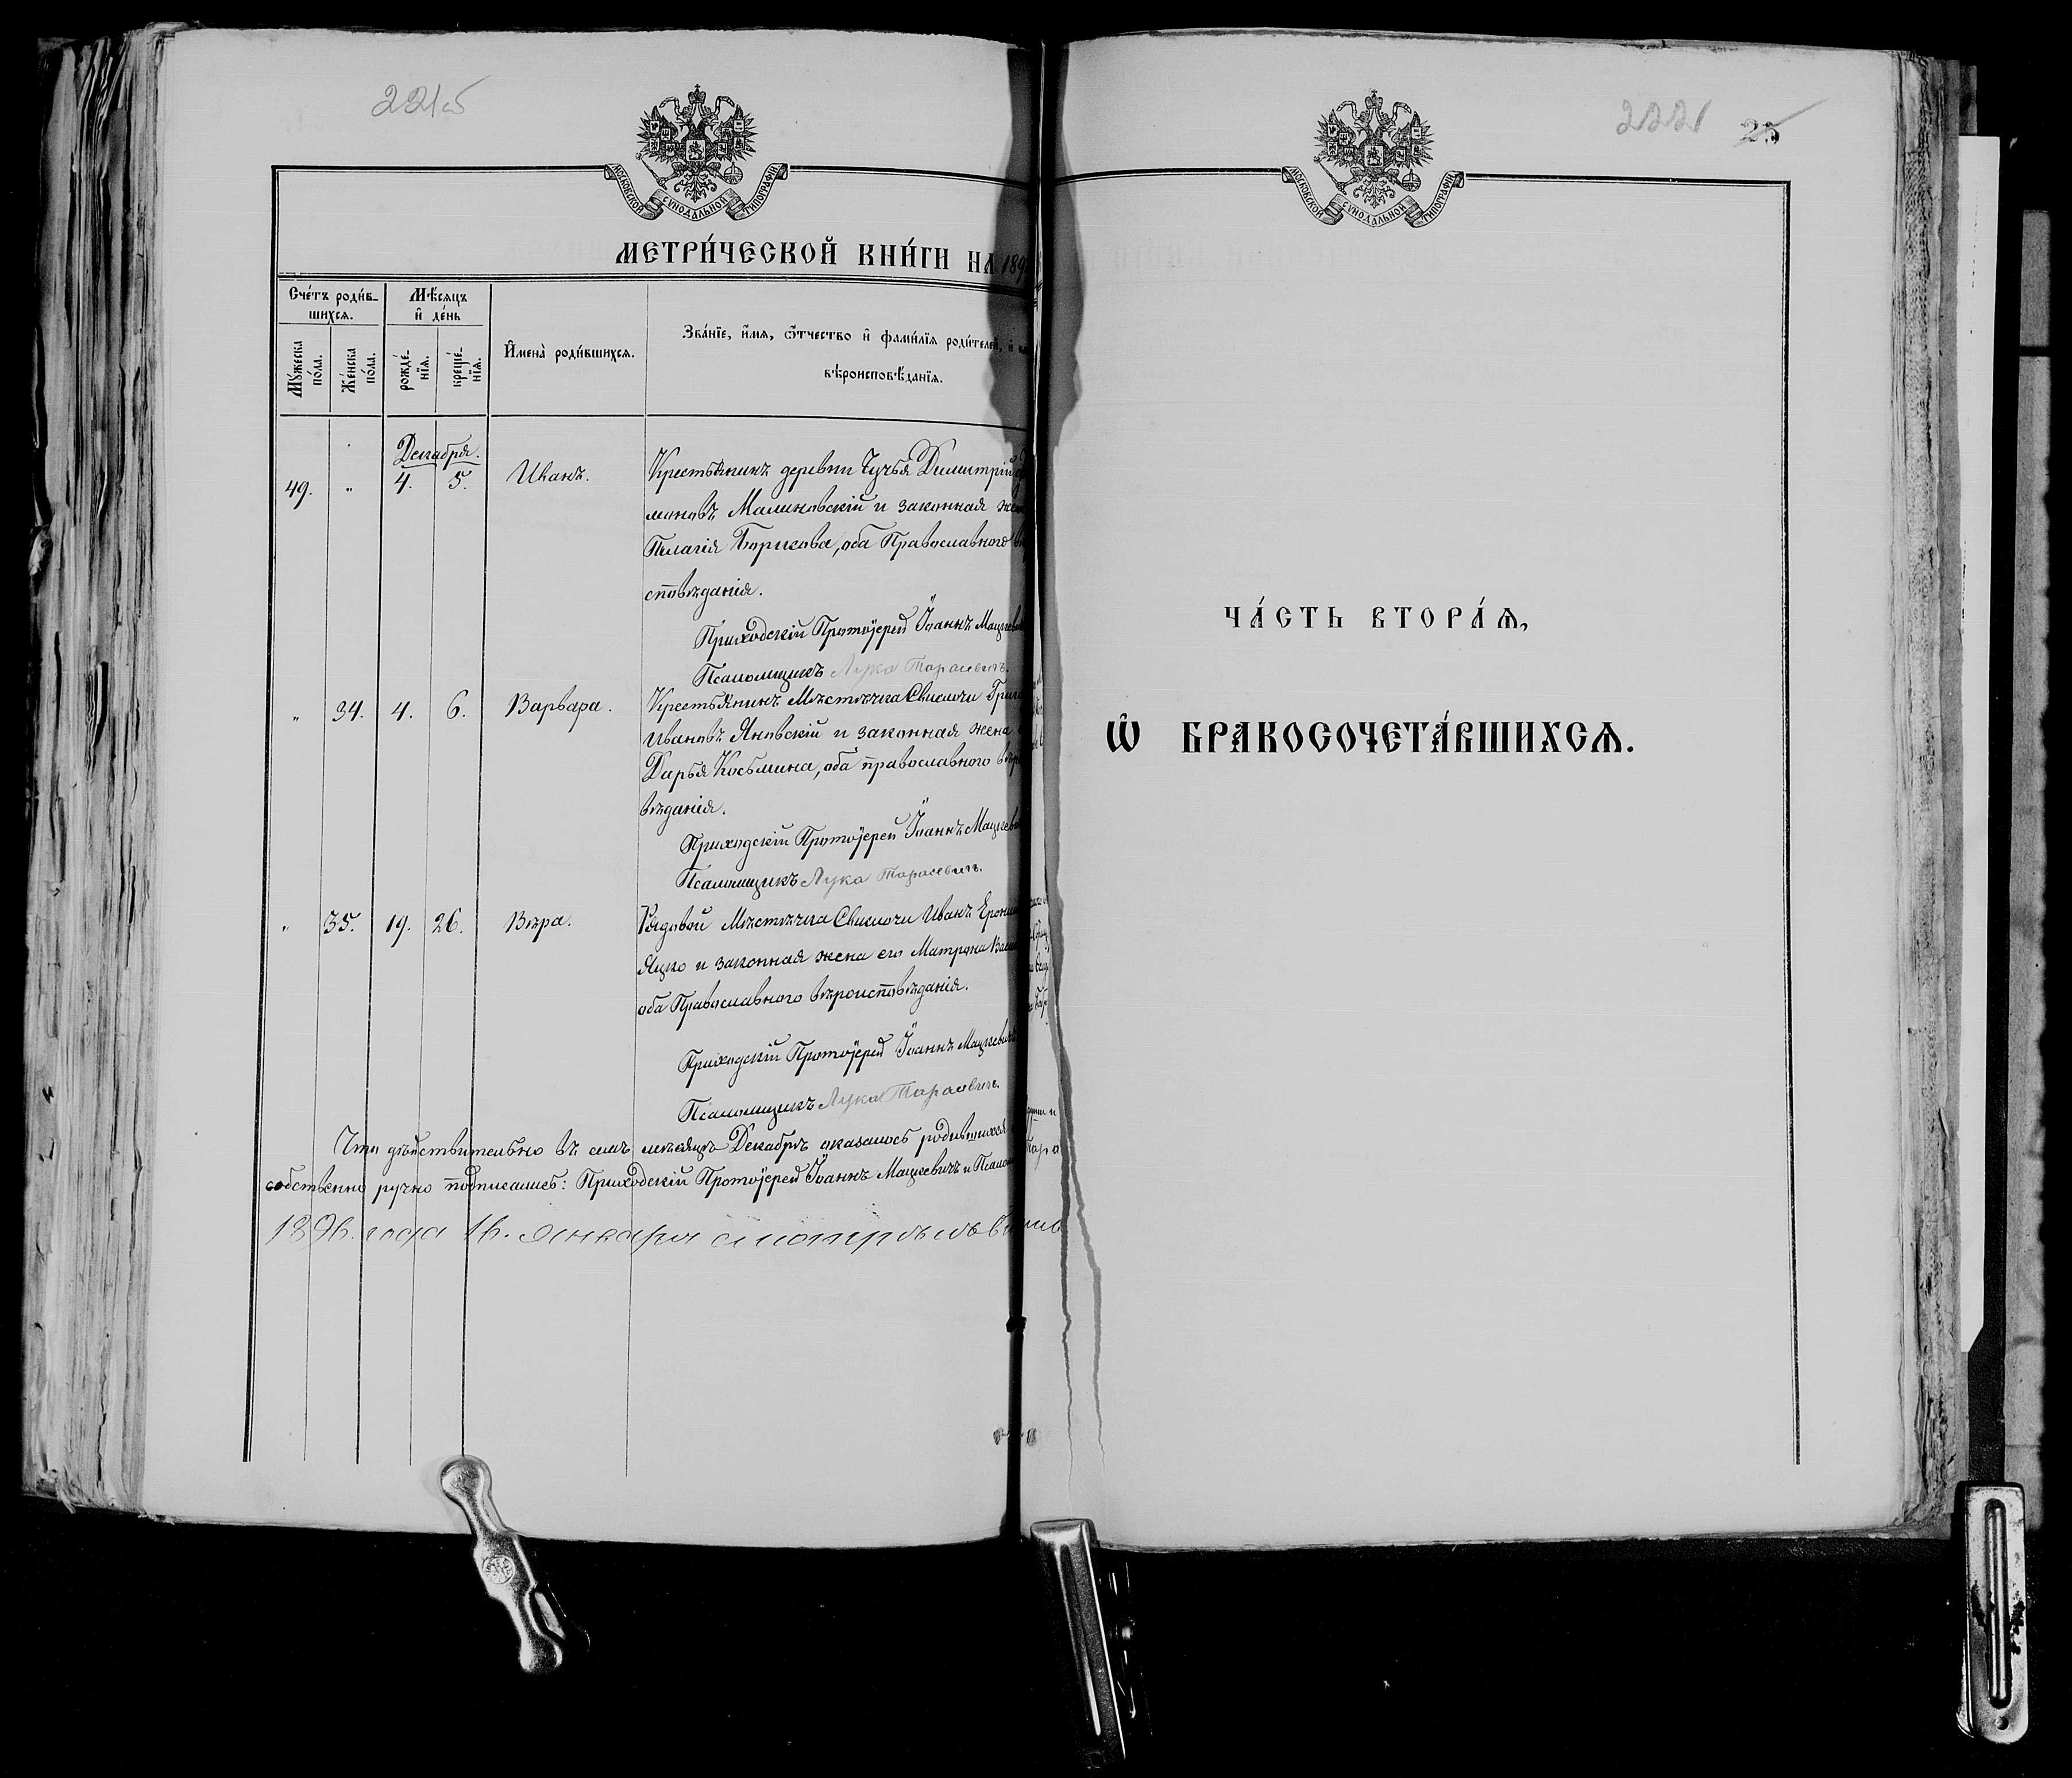 221об
МОСКОВСКОЙ СУНОДАЛЬНОЙ ТИПОГРАФІИ
МЕТРИ́ЧЕСКОЙ КНИ́ГИ НА 189
Сче́тъ роди́в-
шихсѧ.
Мѣ́сѧцъ
и҆ де́нь
Му́жеска
по́ла.
Же́нска
по́ла.
рожде́-
нїѧ.
креще́-
нїѧ.
И҆мена̀ роди́вшихсѧ.
Зва́нїе, и҆́мѧ, ѻ҆́тчество и҆ фами́лїѧ роди́телей, и҆
вѣроисповѣ́данїѧ.
Декабря.
49. " 4. 5. Иванъ.
Крестьянинъ деревни Чучья Димитрій
миновъ Малиновскій и законная же
Пелагія Борисова, оба Православного в
сповѣданія.
Приходскій Протоіерей Іоаннъ Мацкевич
Псаломщикъ Лука Тарасевичъ.
" 34. 4. 6. Варвара.
Крестьянинъ Мѣстечка Свислочи Григо
Ивановъ Яновскій и законная жена
Дарья Косьмина, оба православного вѣро
вѣданія.
Приходскій Протоіерей Іоаннъ Мацкеви
Псаломщикъ Лука Тарасевичъ.
" 35. 19. 26. Вѣра.
Рядовой Мѣстечка Свислочи Иванъ Ероним
Яцко и законная жена его Матрона Васи
оба Православного вѣроисповѣданія.
Приходскій Протоіерей Іоаннъ Мацкевичъ
Псаломщикъ Лука Тарасевичъ.
Что дѣйствительно въ семъ мѣсяцѣ Декабрѣ оказалось родившихся
собственно ручно подписались: Приходскій Протоіерей Іоаннъ Мацкевичъ и Псалом
189 года 16. января
222 25
МОСКОВСКОЙ СУНОДАЛЬНОЙ ТИПОГРАФІИ
ЧА́СТЬ ВТОРА́Ѧ,
Ѽ БРАКОСОЧЕТА́ВШИХСѦ.